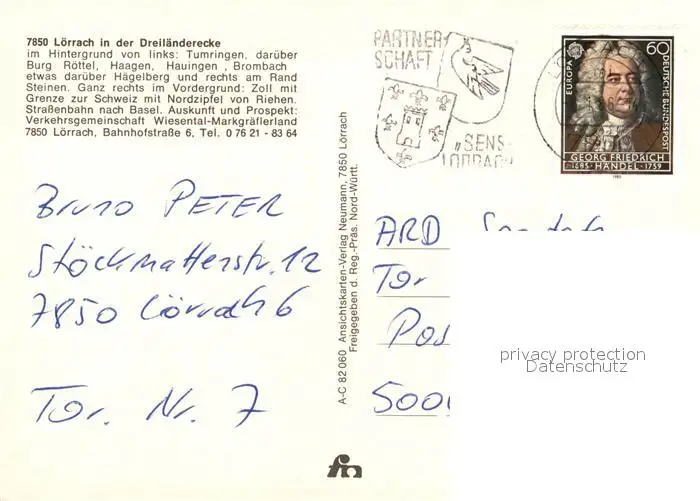 7850 Lörrach in der Dreiländerecke
im Hintergrund von links: Tumringen, darüber
Burg Röttel, Haagen, Hauingen , Brombach
etwas darüber Hägelberg und rechts am Rand
Steinen. Ganz rechts im Vordergrund: Zoll mit
Grenze zur Schweiz mit Nordzipfel von Riehen.
Straßenbahn nach Basel. Auskunft und Prospekt:
Verkehrsgemeinschaft Wiesental-Markgräflerland
7850 Lörrach, Bahnhofstraße 6, Tel. 0 76 21 - 83 64
Bruno PETER
Stöckmattenstr. 12
7850 Lörrach 6
Tor. Nr. 7
A-C 82060 Ansichtskarten-Verlag Neumann, 7850 Lörrach
Freigegeben d. Reg.-Präs. Nord-Württ.
PARTNER
SCHAFT
"SENS-
LÖRRACH
EUROPA
60
DEUTSCHE BUNDESPOST
GEORG FRIEDRICH
1685 HÄNDEL 1759
1985
ARD
Tor
Pos
500
privacy protection
Datenschutz
fm